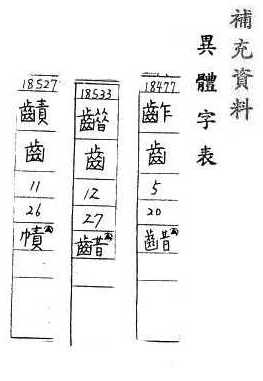 補充資料
異體字表
18477
齚
齒
5
20
齰
18533
齒
12
27
齰
18527
齒
11
26
幘